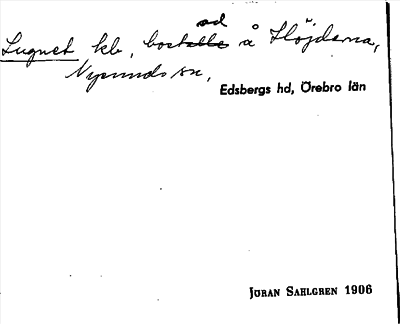 ad
Lugnet kb, bostalle å Höjderna,
Nysunds sn,
Edsbergs hd, Örebro län
JÖRAN SAHLGREN 1906